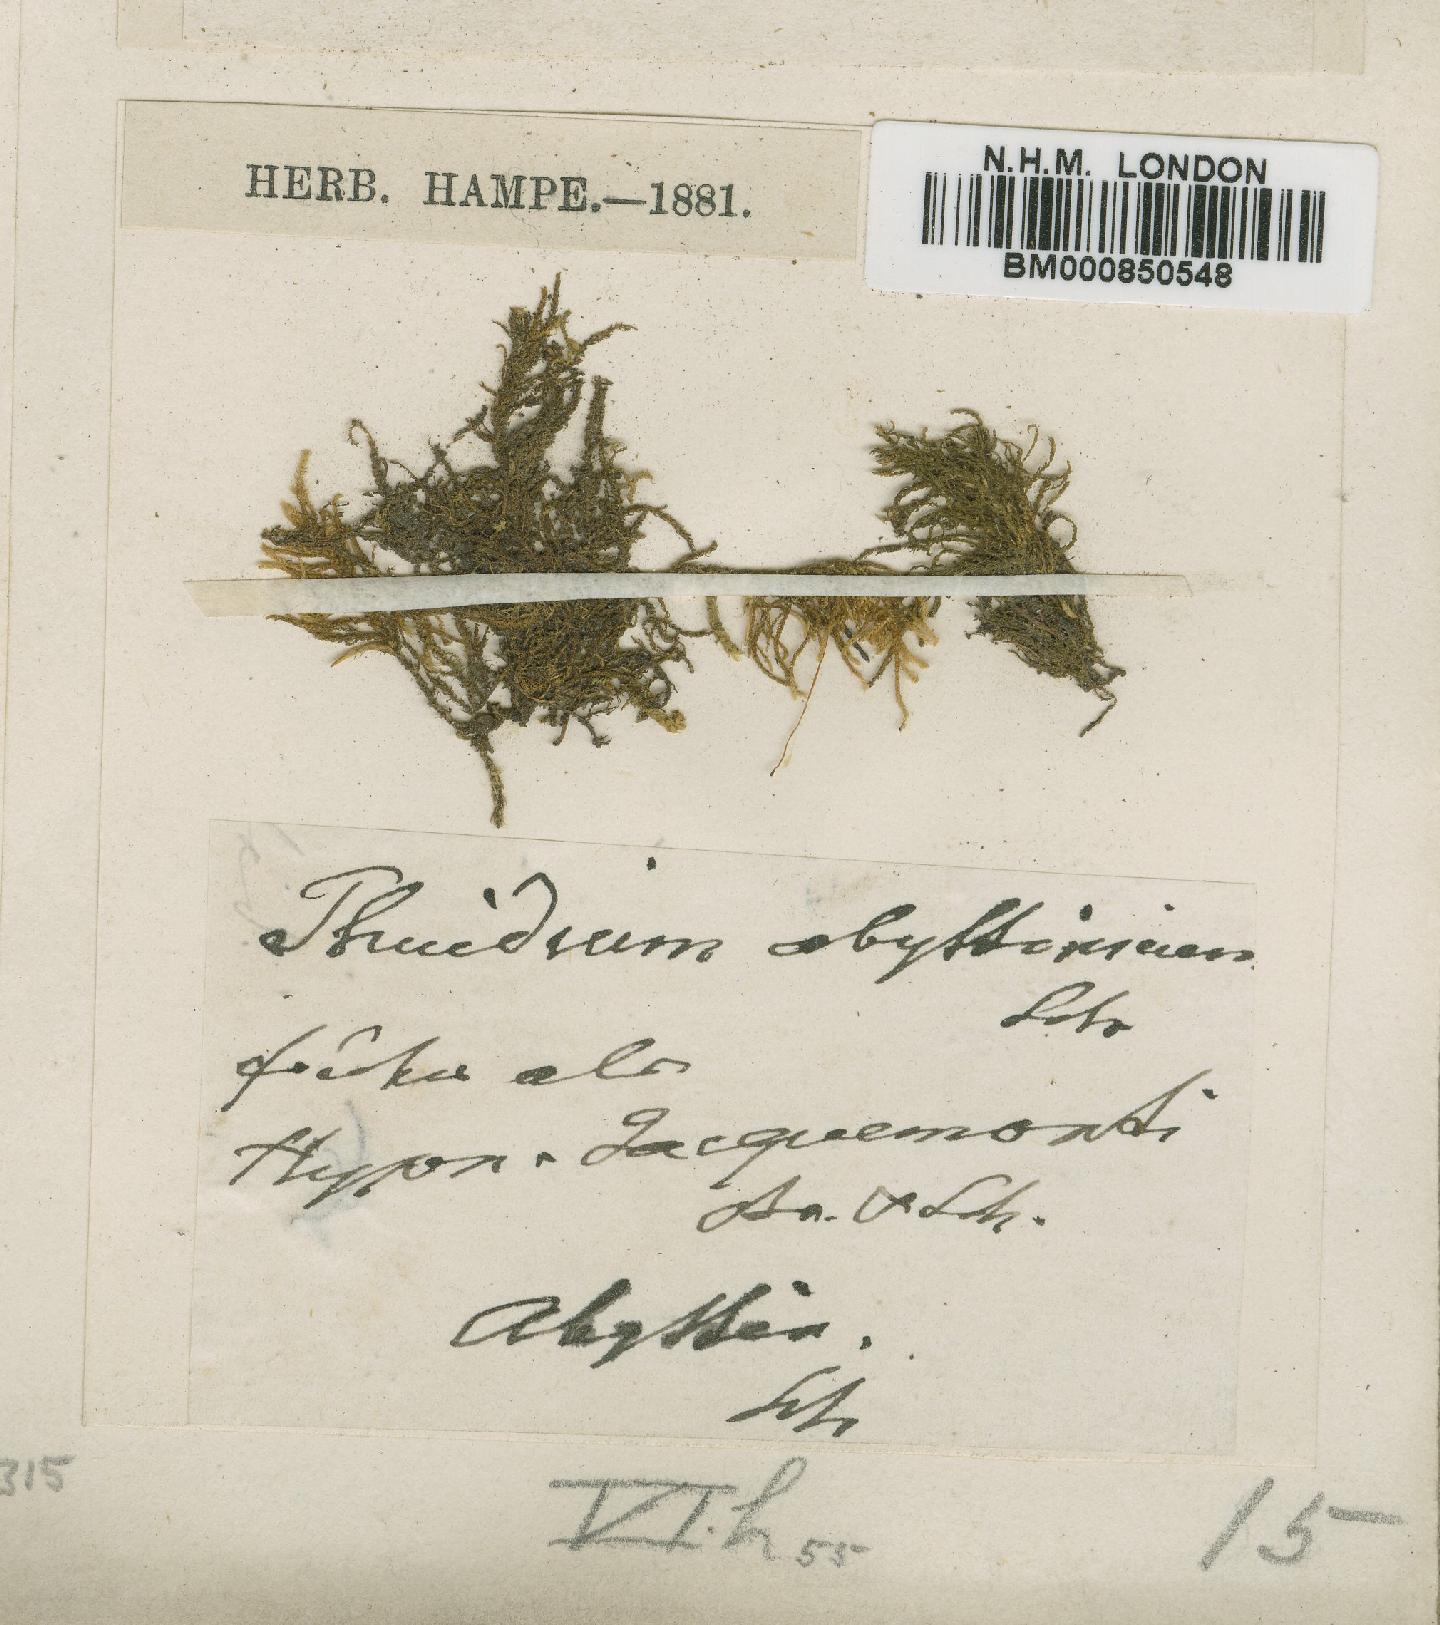 HERB. HAMPE.—1881.
N.H.M. LONDON
BM000850548
Thuidium abyssinicum
Sch
früher als
Hypn. Jacquemonti
Br. & Sch.
Abyssin.
Sch
315
VI.h 55
15